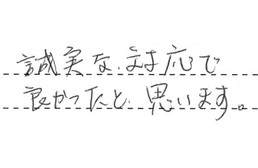 誠実な対応で
良かったと思います。